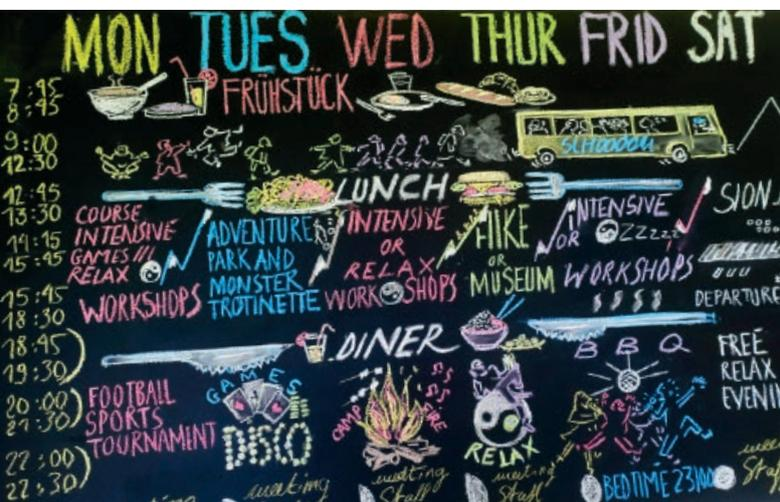 MON TUES WED THUR FRID SAT
7:45
8:45
FRÜHSTÜCK
9:00
12:30
12:45
13:30
LUNCH
14:15
15:45
COURSE
INTENSIVE
GAMES ///
RELAX
WORKSHOPS
ADVENTURE
PARK AND
MONSTER
TROTINETTE
INTENSIVE
OR
RELAX
WORKSHOPS
HIKE
OR
MUSEUM
INTENSIVE
OR ZZzzz
WORKSHOPS
SION
DEPARTURE
15:45
18:30
18:45
19:30
DINER
BBQ
FREE
RELAX
EVENI
20:00
21:30
FOOTBALL
SPORTS
TOURNAMENT
GAMES
DISCO
CAMP FIRE
RELAX
22:00
22:30
meeting
meeting
Staff
meeting
Staff
BEDTIME 23h00